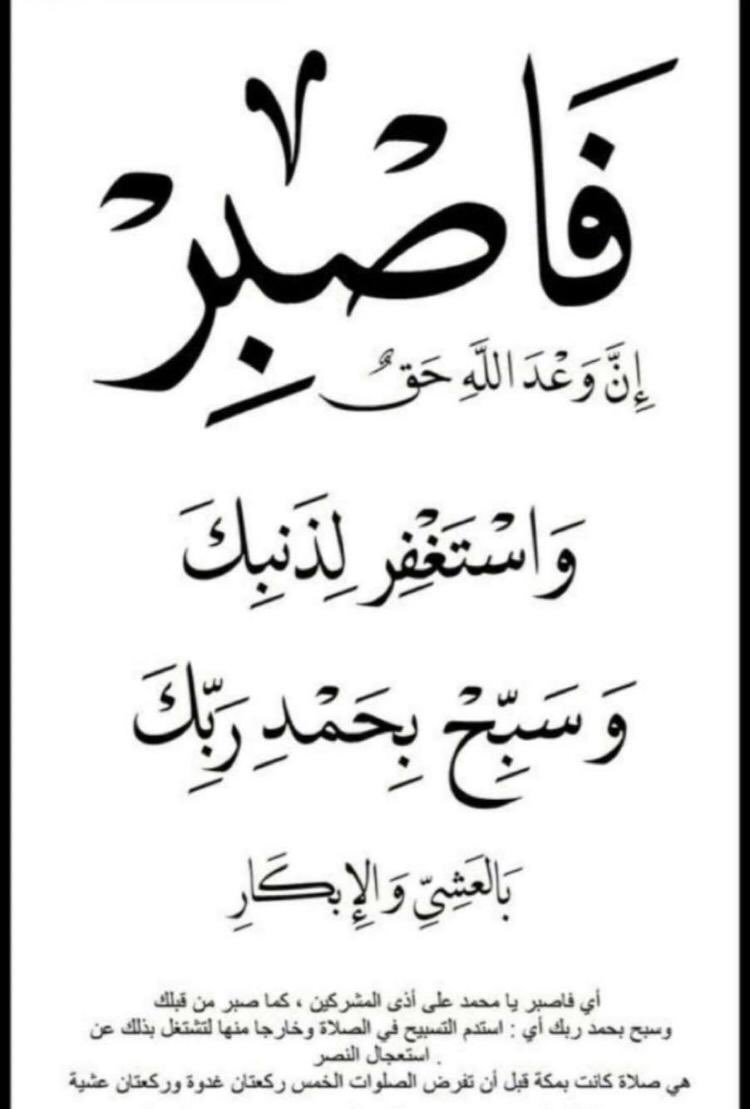 فَاصْبِرْ
إِنَّ وَعْدَ اللَّهِ حَقٌ
وَاسْتَغْفِر لِذَنبِكَ
وَسَبِّحْ بِحَمْدِ رَبِّكَ
بَالعَشِيِّ وَالإِبكَارِ
أي فاصبر يا محمد على أذى المشركين ، كما صبر من قبلك
وسبح بحمد ربك أي : استدم التسبيح في الصلاة وخارجا منها لتشتغل بذلك عن
. استعجال النصر
هي صلاة كانت بمكة قبل أن تفرض الصلوات الخمس ركعتان غدوة وركعتان عشية